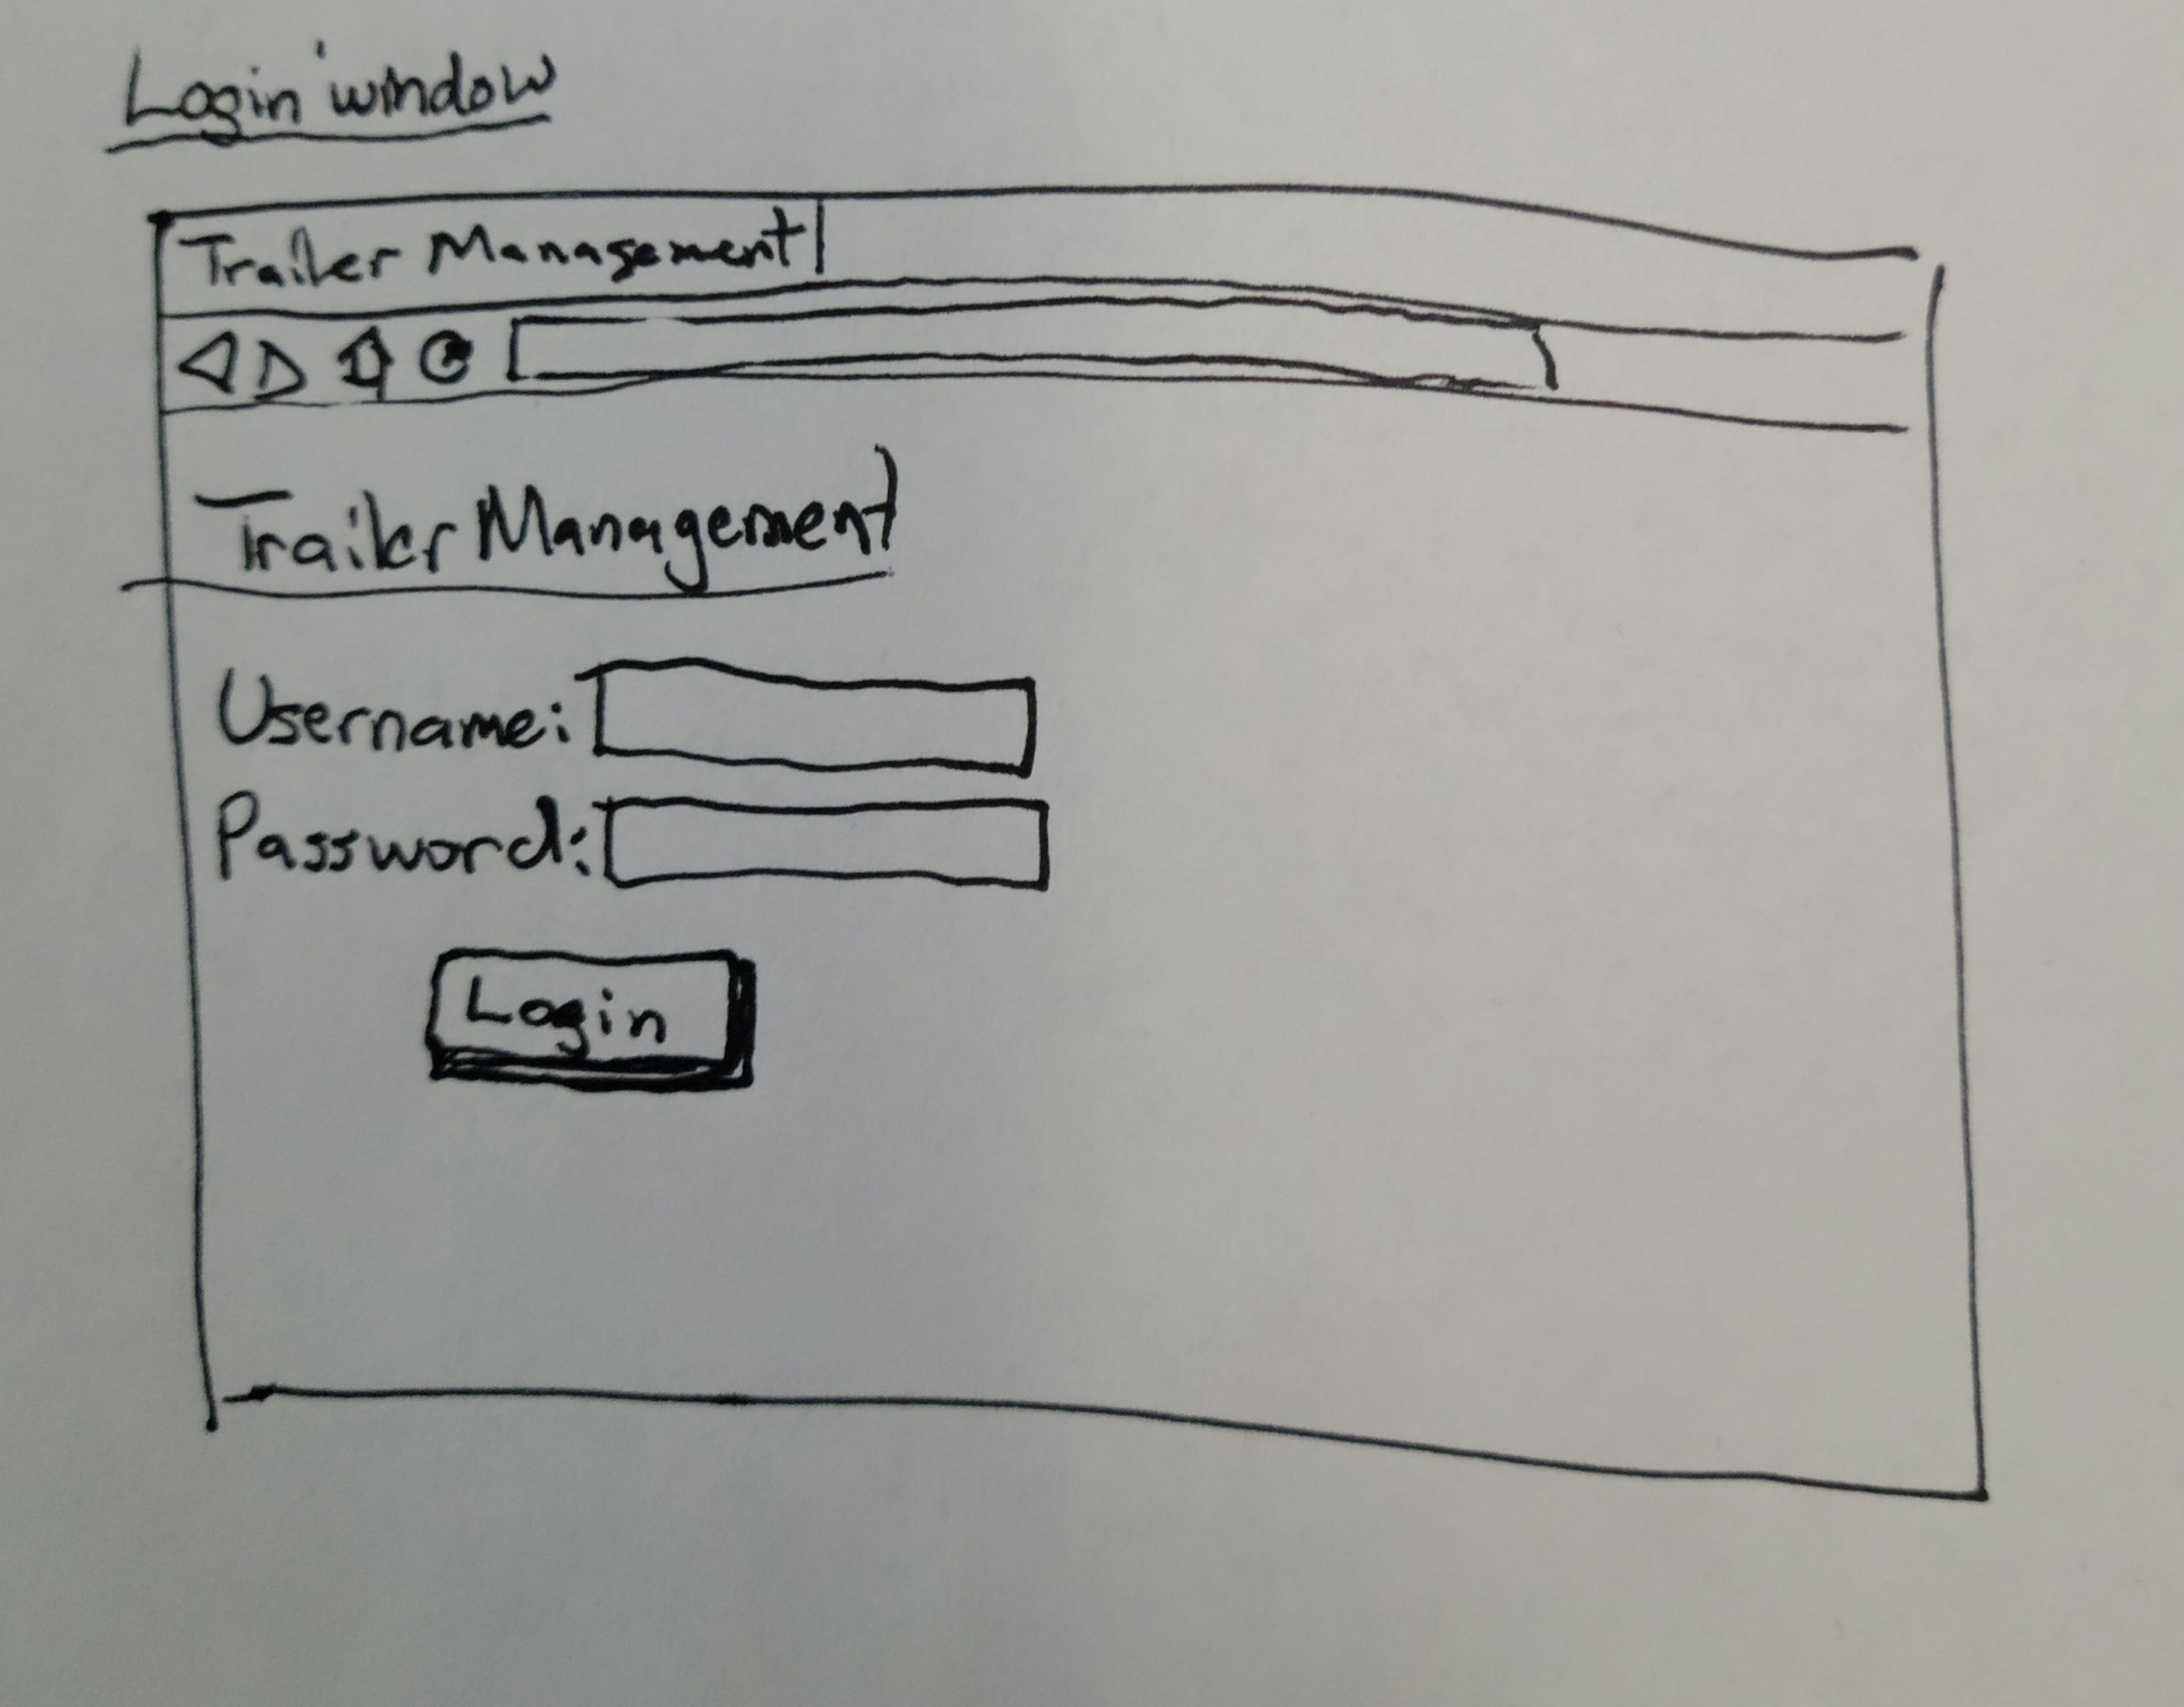 Login window
Trailer Management
Trailer Management
Username:
Password:
Login